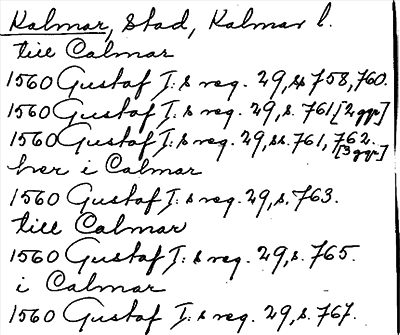 Kalmar, Stad, Kalmar l.
till Calmar
1560 Gustaf I:s reg. 29, ss 758, 760.
1560 Gustaf I:s reg. 29, s. 761 [2 ggr]
1560 Gustaf I:s reg. 29, ss. 761, 762. [3 ggr]
her i Calmar
1560 Gustaf I:s reg. 29, s. 763.
till Calmar
1560 Gustaf I:s reg. 29, s. 765.
i Calmar
1560 Gustaf I:s reg. 29, s. 767.